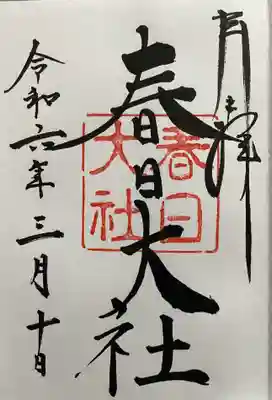 奉拝
春日大社
春日大社
令和六年三月十日